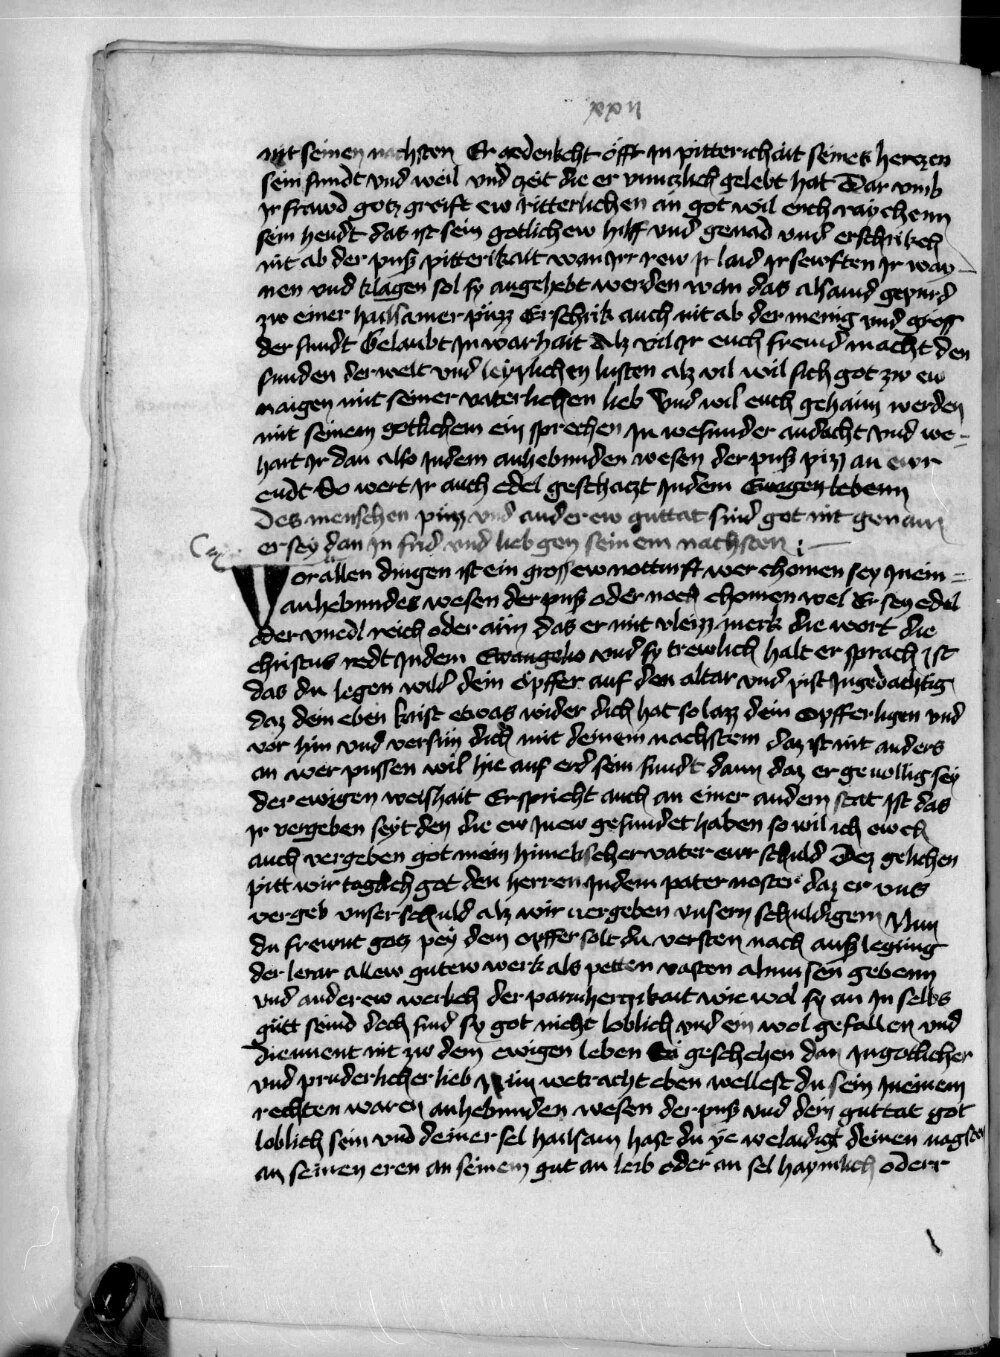 xxii
mit seinen nachsten Er gedenkcht offt in pitterichait seines herczen
sein sundt vnd weil vnd zeit die er vnnuczlich gelebt hat Dar vmb
Ir frawd gotz greift ew ritterlichen an got wil euch raychenn
sein hendt das ist sein gotlichew hilff vnd genad vnd erschrikch
nit ab der puß pitterikait wan Irr rew Ir laid Ir sewften Ir way
nen vnd klagen sol sy angehebt werden wan das alsamd gepurd
zw einer hailsamer puzz Erschrik auch nit ab der menig vnd gross
der sundt Gelaubt In warhait Alz vil Ir euch fremd macht den
sunden der welt vnd leyplichen lusten alz vil wil sich got zw ew
naigen mit seiner vaterlichen lieb Vnd wil euch gehaim werden
mit seinem gotlichem ein sprechen In wesunder andacht vnd we
hart Ir dan also Indem anhebunden wesen der puß pizz an ewr
endt So wert Ir auch edel geschaczt Indem Ewigen lebenn
Des menschen puzz vnd anderew guttat sind got nit genam
er sey dan In frid vnd lieb gen seinem nachsten
Vor allen dingen ist ein grossew notturft wer chomen sey In ein
anhebundes wesen der puß oder noch chomen wel Er sey edel
oder vnedl reich oder arm das er mit vleizz merk die wort die
christus redt Indem Ewangelio vnd sy trewlich halt er sprach ist
das du legen wild dein opffer auf den altar vnd pist Ingedachtig
daz dein eben krist etwas wider dich hat so lazz dein opffer ligen vnd
vor hin vnd versun dich mit deinem nachstem daz ist nit anders
an wer pussen wil hie auf erd sein sundt dann daz er gevollig sey
der ewigen weishait Er spricht auch an einer andern stat Ist das
Ir vergeben seyt den die ew In ew gesundet haben so wil ich ewch
auch vergeben got mein himelischer vater ewr schuld Dez gelichen
pitt wir taglich got den herren Indem pater noster daz er vns
vergeb vnser schuld alz wir vergeben vnsern schuldigern Nun
du frewnt gotz pey dem opffer solt du versten nach außlegung
der lerar allew gutew werk als petten vasten almusen gebenn
vnd anderew werkch der parmherczikait wie wol sy an In selbs
gutt seind doch sind sy got nicht loblich vnd ein wol gefallen vnd
dienent nit zw dem ewigen leben Sy geschehen dan In gotlicher
vnd pruderlicher lieb Nun wetracht eben wellest du sein In einem
rechten waren anhebunden wesen der puß vnd dein guttat got
loblich sein vnd deiner sel hailsam hast du ye welaidigt deinen nagsten
an seinen eren an seinem gut an leib oder an sel haymlich oderr